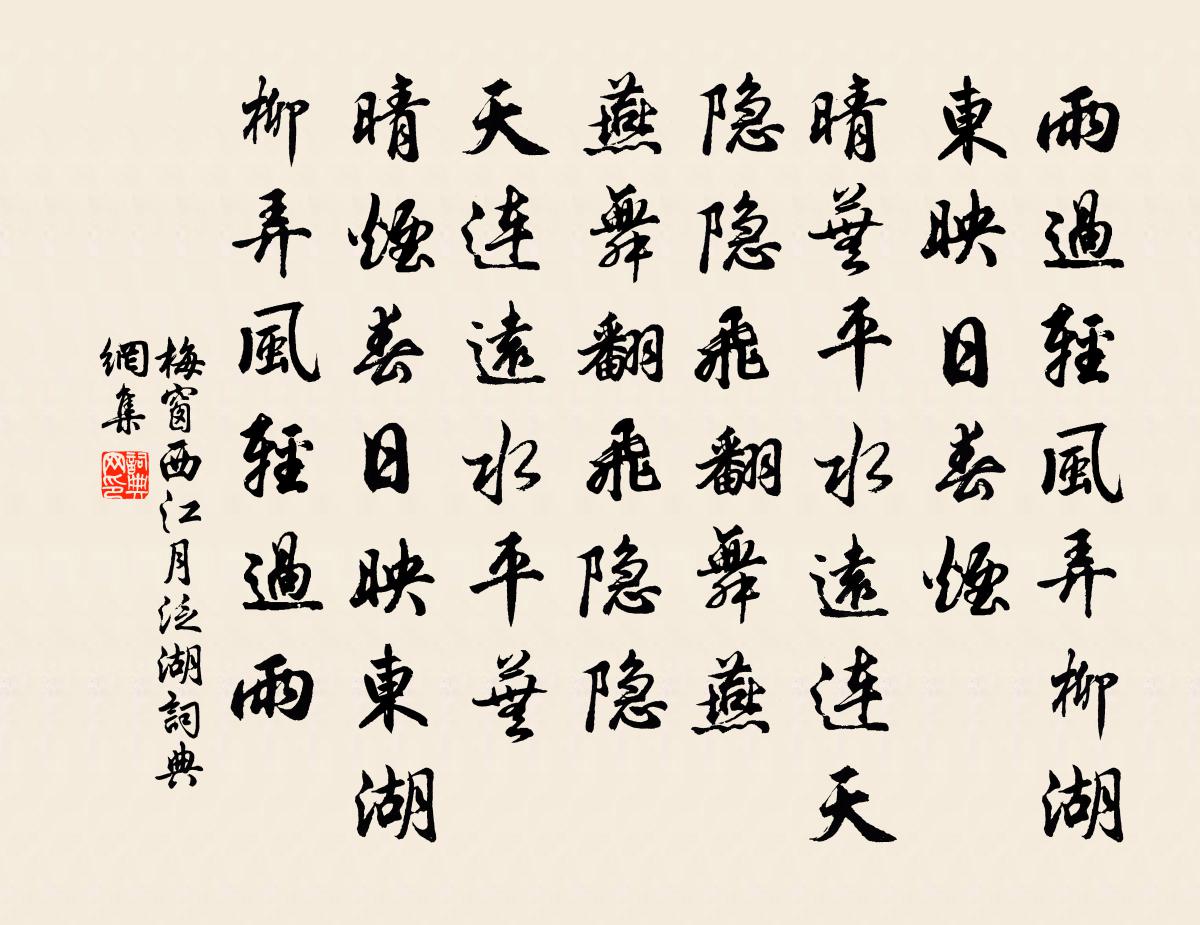 雨過輕風弄柳湖
東映日春煙
晴蕪平水遠连天
隐隐飛翻舞燕
燕舞翻飛隐隐
天连遠水平蕪
晴煙春日映東湖
柳弄風輕過雨
梅窗西江月泛湖詞典
網集
詞典
网印